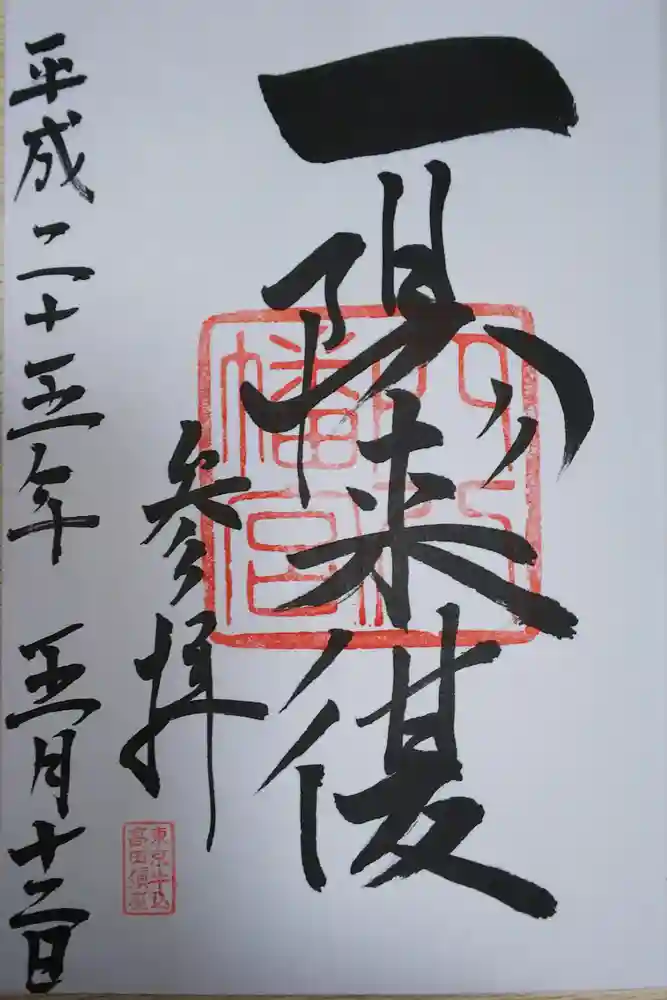 一陽来復
幡宮
参拝
東京牛込
高田鎮座
平成二十五年 五月十二日